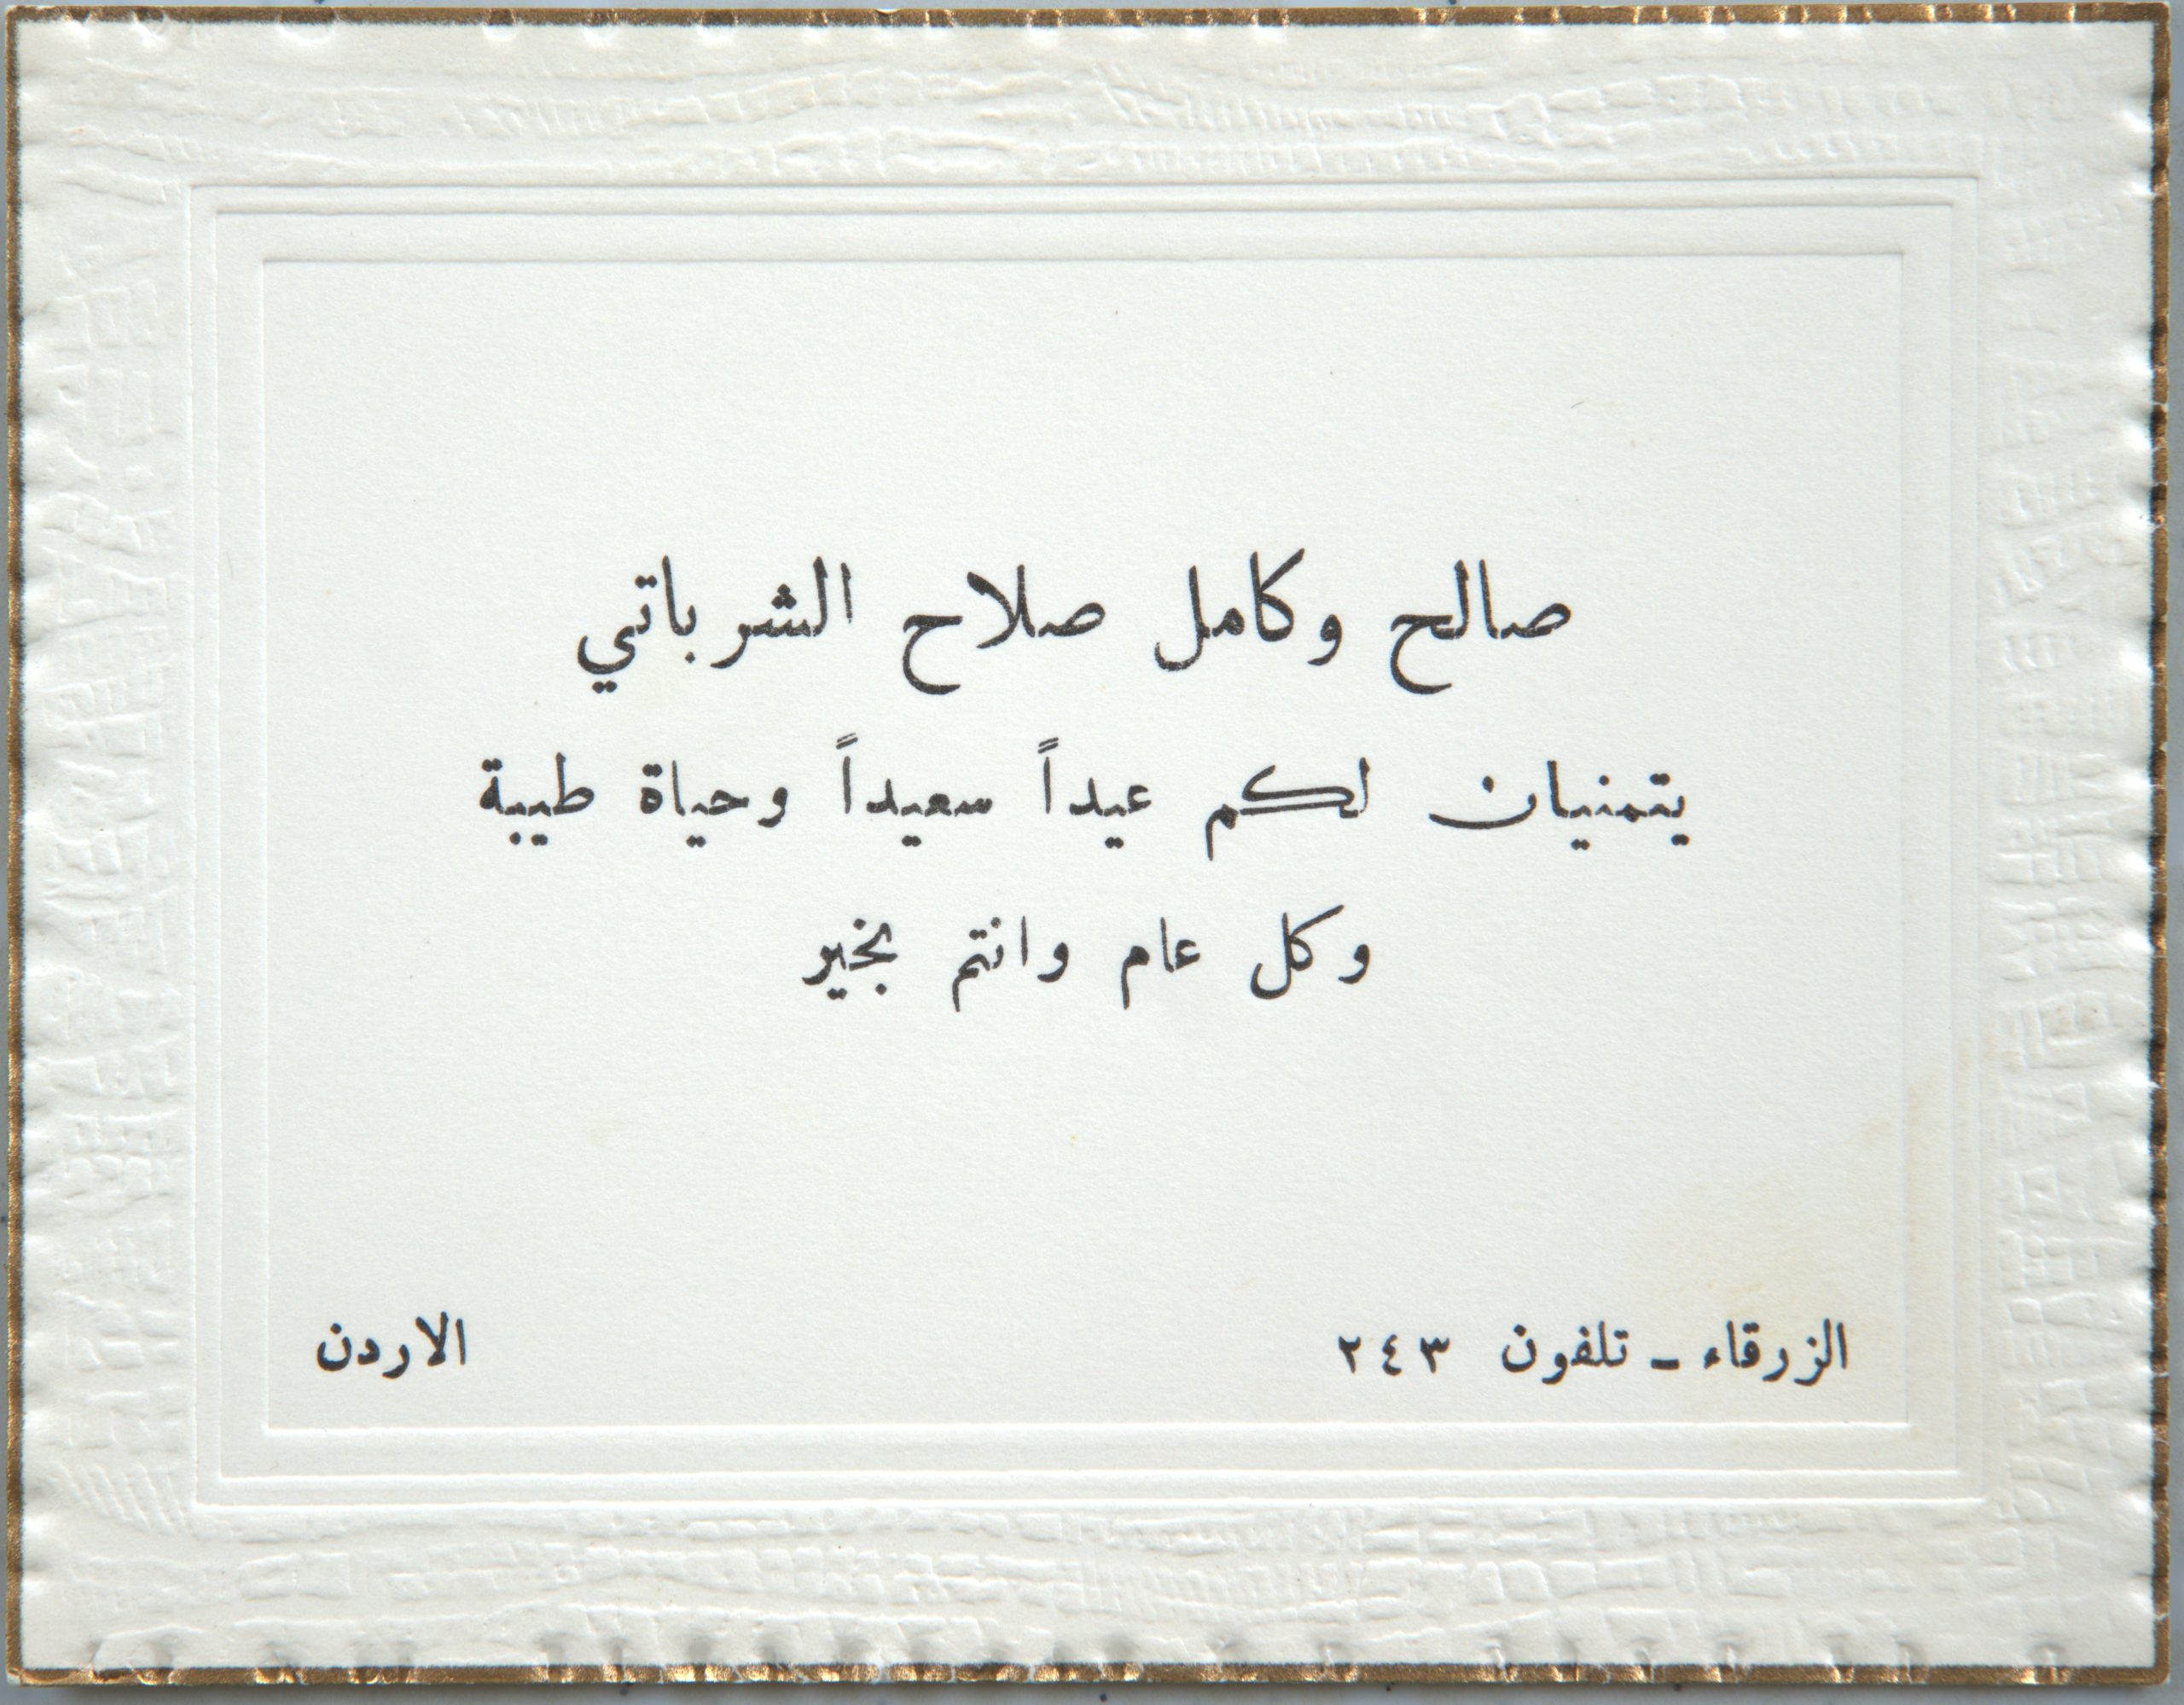 صالح وكامل صلاح الشرباتي
يتمنيان لكم عيداً سعيداً وحياة طيبة
وكل عام وانتم بخير
الزرقاء - تلفون ٢٤٣
الاردن